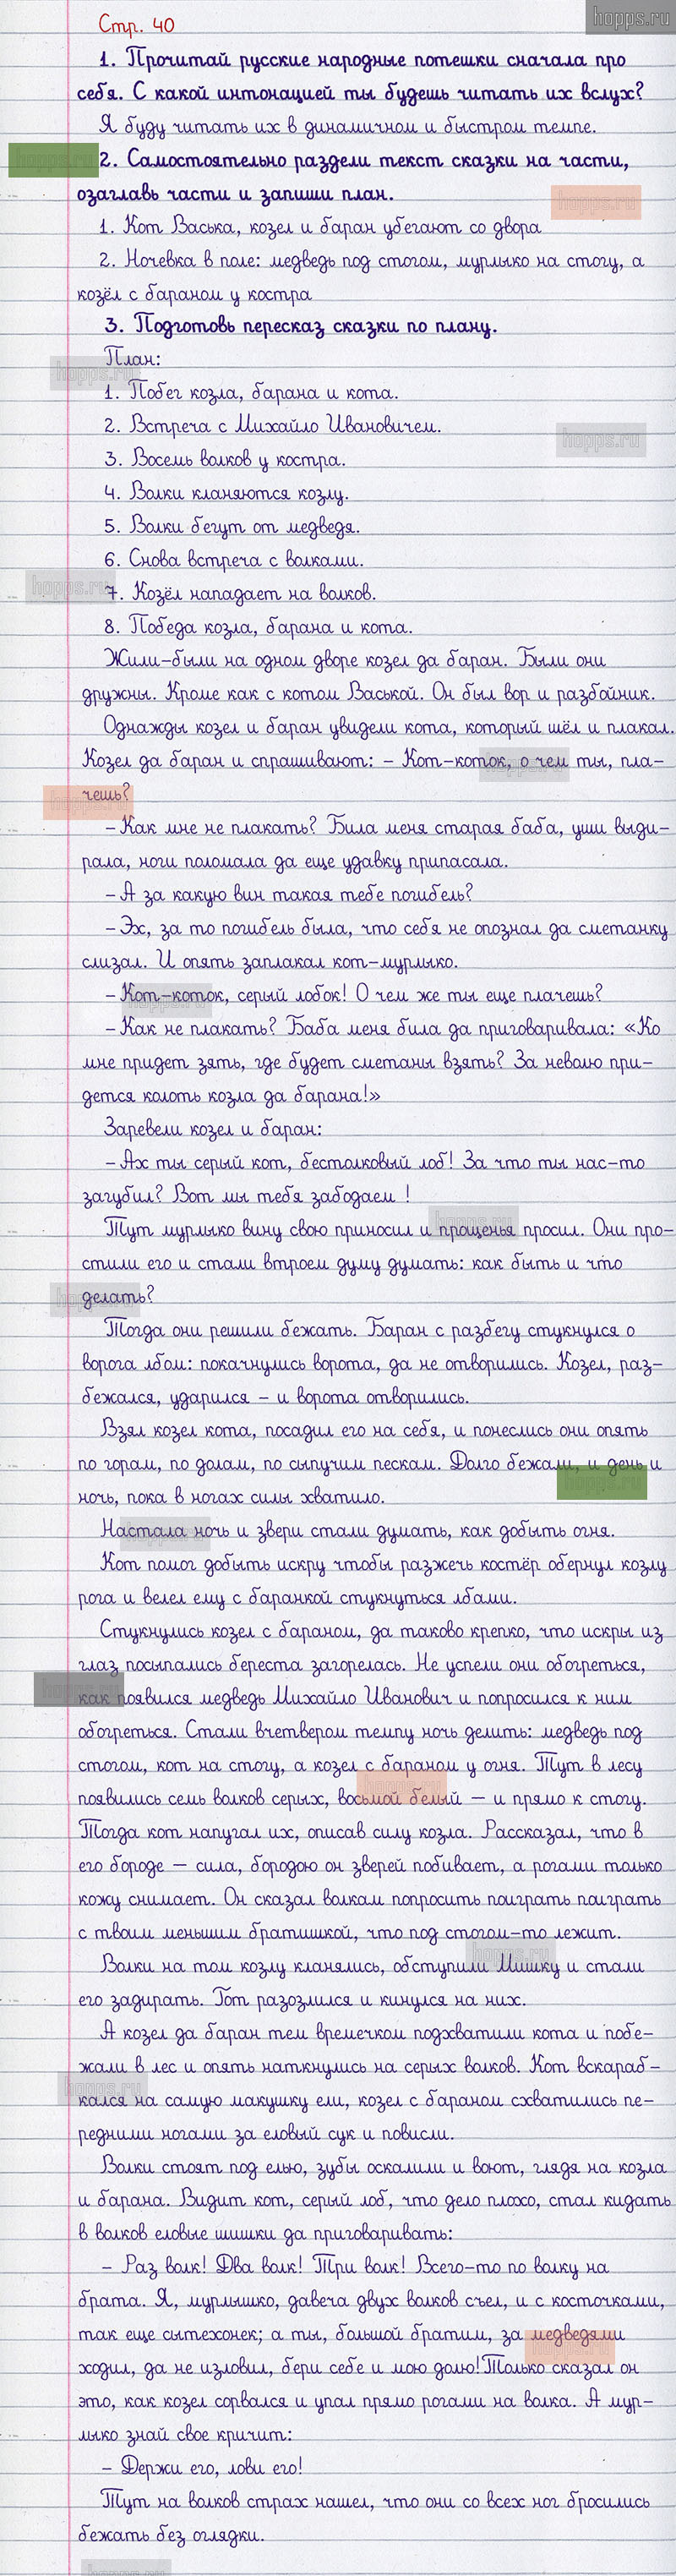 hopps.ru
Стр. 40
1. Прочитай русские народные потешки сначала про
себя. С какой интонацией ты будешь читать их вслух?
Я буду читать их в динамичном и быстром темпе.
hopps.ru
2. Самостоятельно раздели текст сказки на части,
озаглавь части и запиши план.
hopps.ru
1. Кот Васька, козел и баран убегают со двора
2. Ночевка в поле: медведь под стогом, мурлыко на стогу, а
козёл с бараном у костра
3. Подготовь пересказ сказки по плану.
План:
hopps.ru
1. Побег козла, барана и кота.
2. Встреча с Михайло Ивановичем.
hopps.ru
3. Восемь волков у костра.
4. Волки кланяются козлу.
5. Волки бегут от медведя.
6. Снова встреча с волками.
hopps.ru
7. Козёл нападает на волков.
8. Победа козла, барана и кота.
Жили-были на одном дворе козел да баран. Были они
дружны. Кроме как с котом Васькой. Он был вор и разбойник.
Однажды козел и баран увидели кота, который шёл и плакал.
Козел да баран и спрашивают: – Кот-коток, о чем ты, пла-
hopps.ru
чешь?
hopps.ru
– Как мне не плакать? Била меня старая баба, уши выди-
рала, ноги поломала да еще удавку припасала.
– А за какую вин такая тебе погибель?
– Эх, за то погибель была, что себя не опознал да сметанку
слизал. И опять заплакал кот-мурлыко.
– Кот-коток, серый лобок! О чем же ты еще плачешь?
hopps.ru
– Как не плакать? Баба меня била да приговаривала: «Ко
мне придет зять, где будет сметаны взять? За неволю при-
дется колоть козла да барана!»
Заревели козел и баран:
– Ах ты серый кот, бестолковый лоб! За что ты нас-то
загубил? Вот мы тебя забодаем !
Тут мурлыко вину свою приносил и прощенья просил. Они про-
hopps.ru
стили его и стали втроем думу думать: как быть и что
делать?
hopps.ru
Тогда они решили бежать. Баран с разбегу стукнулся о
ворога лбом: покачнулись ворота, да не отворились. Козел, раз-
бежался, ударился – и ворота отворились.
Взял козел кота, посадил его на себя, и понеслись они опять
по горам, по долам, по сыпучим пескам. Долго бежали, и день и
hopps.ru
ночь, пока в ногах силы хватило.
Настала ночь и звери стали думать, как добыть огня.
hopps.ru
Кот помог добыть искру чтобы разжечь костёр обернул козлу
рога и велел ему с баранкой стукнуться лбами.
Стукнулись козел с бараном, да таково крепко, что искры из
глаз посыпались береста загорелась. Не успели они обогреться,
как появился медведь Михайло Иванович и попросился к ним
hopps.ru
обогреться. Стали вчетвером темпу ночь делить: медведь под
стогом, кот на стогу, а козел с бараном у огня. Тут в лесу
появились семь волков серых, восьмой белый – и прямо к стогу.
hopps.ru
Тогда кот напугал их, описав силу козла. Рассказал, что в
его бороде – сила, бородою он зверей побивает, а рогами только
кожу снимает. Он сказал волкам попросить поиграть поиграть
с твоим меньшим братишкой, что под стогом-то лежит.
hopps.ru
Волки на том козлу кланялись, обступили Мишку и стали
его задирать. Тот разозлился и кинулся на них.
А козел да баран тем времечком подхватили кота и побе-
жали в лес и опять наткнулись на серых волков. Кот вскараб-
hopps.ru
кался на самую макушку ели, козел с бараном схватились пе-
редними ногами за еловый сук и повисли.
Волки стоят под елью, зубы оскалили и воют, глядя на козла
и барана. Видит кот, серый лоб, что дело плохо, стал кидать
в волков еловые шишки да приговаривать:
– Раз волк! Два волк! Три волк! Всего-то по волку на
брата. Я, мурлышко, давеча двух волков съел, и с косточками,
так еще сытехонек; а ты, большой братим, за медведями
hopps.ru
ходил, да не изловил, бери себе и мою долю! Только сказал он
это, как козел сорвался и упал прямо рогами на волка. А мур-
лыко знай свое кричит:
– Держи его, лови его!
Тут на волков страх нашел, что они со всех ног бросились
бежать без оглядки.
hopps.ru